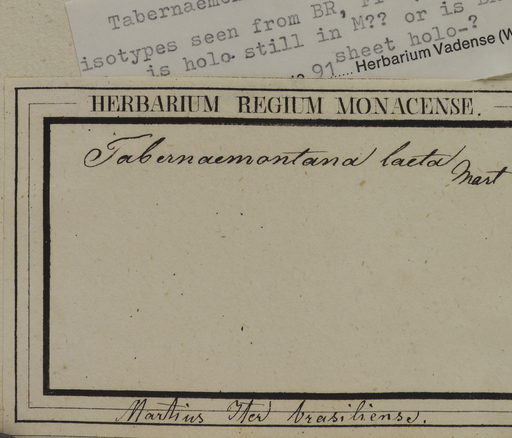 isotypes seen from BR,
is holo still in M?? or is
sheet holo-?
91..... Herbarium Vadense (W
HERBARIUM REGIUM MONACENSE.
Tabernaemontana laeta
Mart
Martius Iter brasiliense.